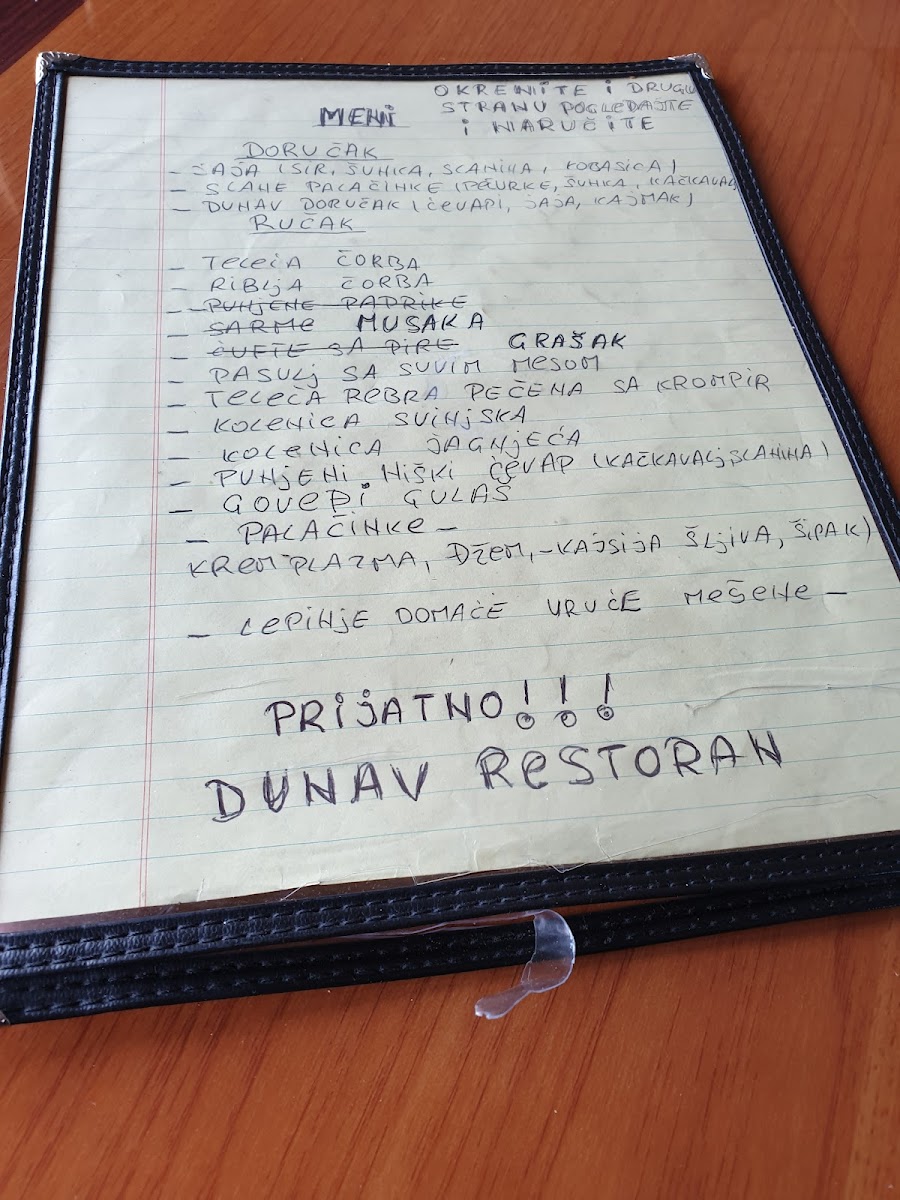 OKRENITE I DRUGU
STRANU POGLEDAJTE
I NARUČITE
MENI
DORUČAK
- JAJA (SIR, ŠUNKA, SLANINA, KOBASICA)
- SLANE PALAČINKE (PEČURKE, ŠUNKA, KAČKAVALJ
- DUNAV DORUČAK (ĆEVAPI, JAJA, KAJMAK)
RUČAK
- TELEĆA ČORBA
- RIBLJA ČORBA
- PUNJENE PAPRIKE
- SARME MUSAKA
- ĆUFTE SA PIRE GRAŠAK
- PASULJ SA SUVIM MESOM
- TELEĆA REBRA PEČENA SA KROMPIR
- KOLENICA SVINJSKA
- KOLENICA JAGNJEĆA
- PUNJENI NIŠKI ĆEVAP (KAČKAVALJ SLANINA)
- GOVEĐI GULAŠ
- PALAČINKE -
KREM PLAZMA, DŽEM, - KAJSIJA ŠLJIVA, ŠIPAK)
- LEPINJE DOMAĆE VRUĆE MEŠENE -
PRIJATNO!!!
DUNAV RESTORAN